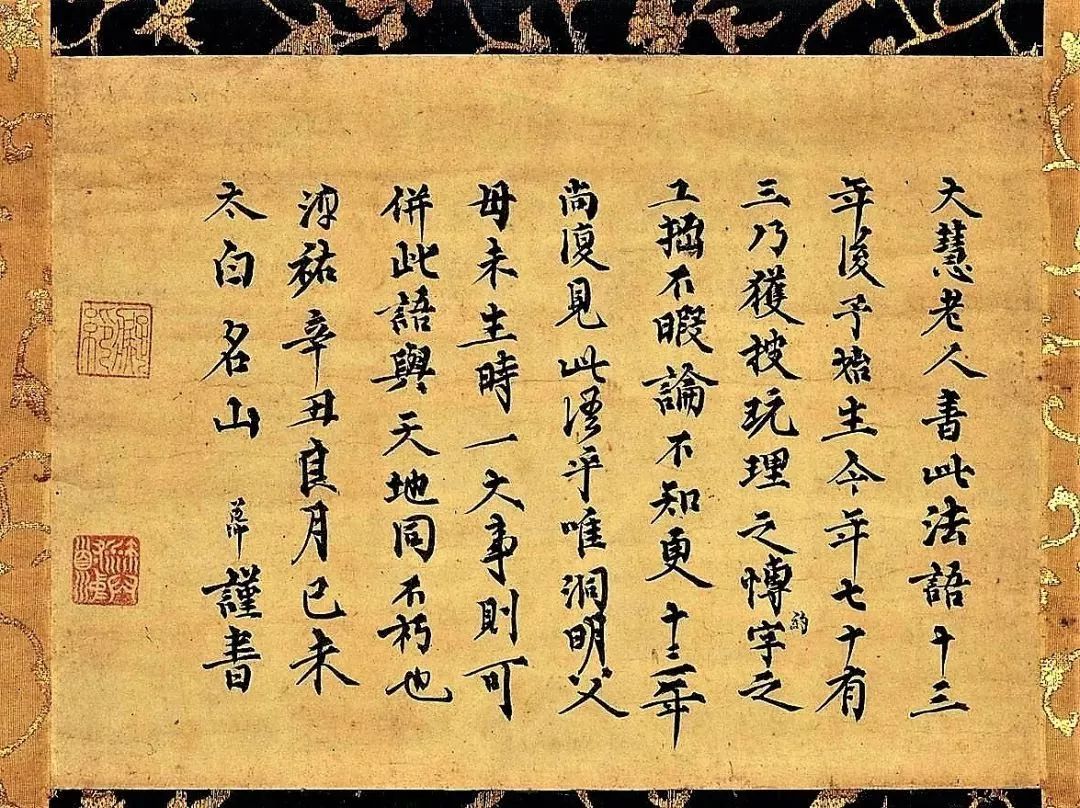 大慧老人書此法語十三
年後予始生今年七十有
三乃獲披玩理之慱約字之
工拙不暇論不知更十三年
尚復見此語乎唯洞明父
母未生時一大事則可
併此語與天地同不朽也
淳祐辛丑良月己未
太白名山謹書